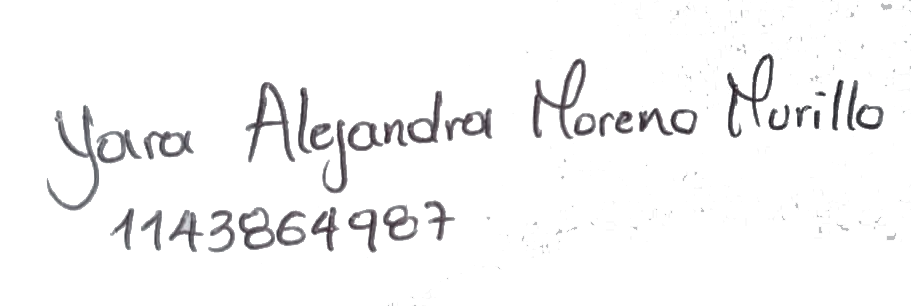 Yara Alejandra Moreno Murillo
1143864987